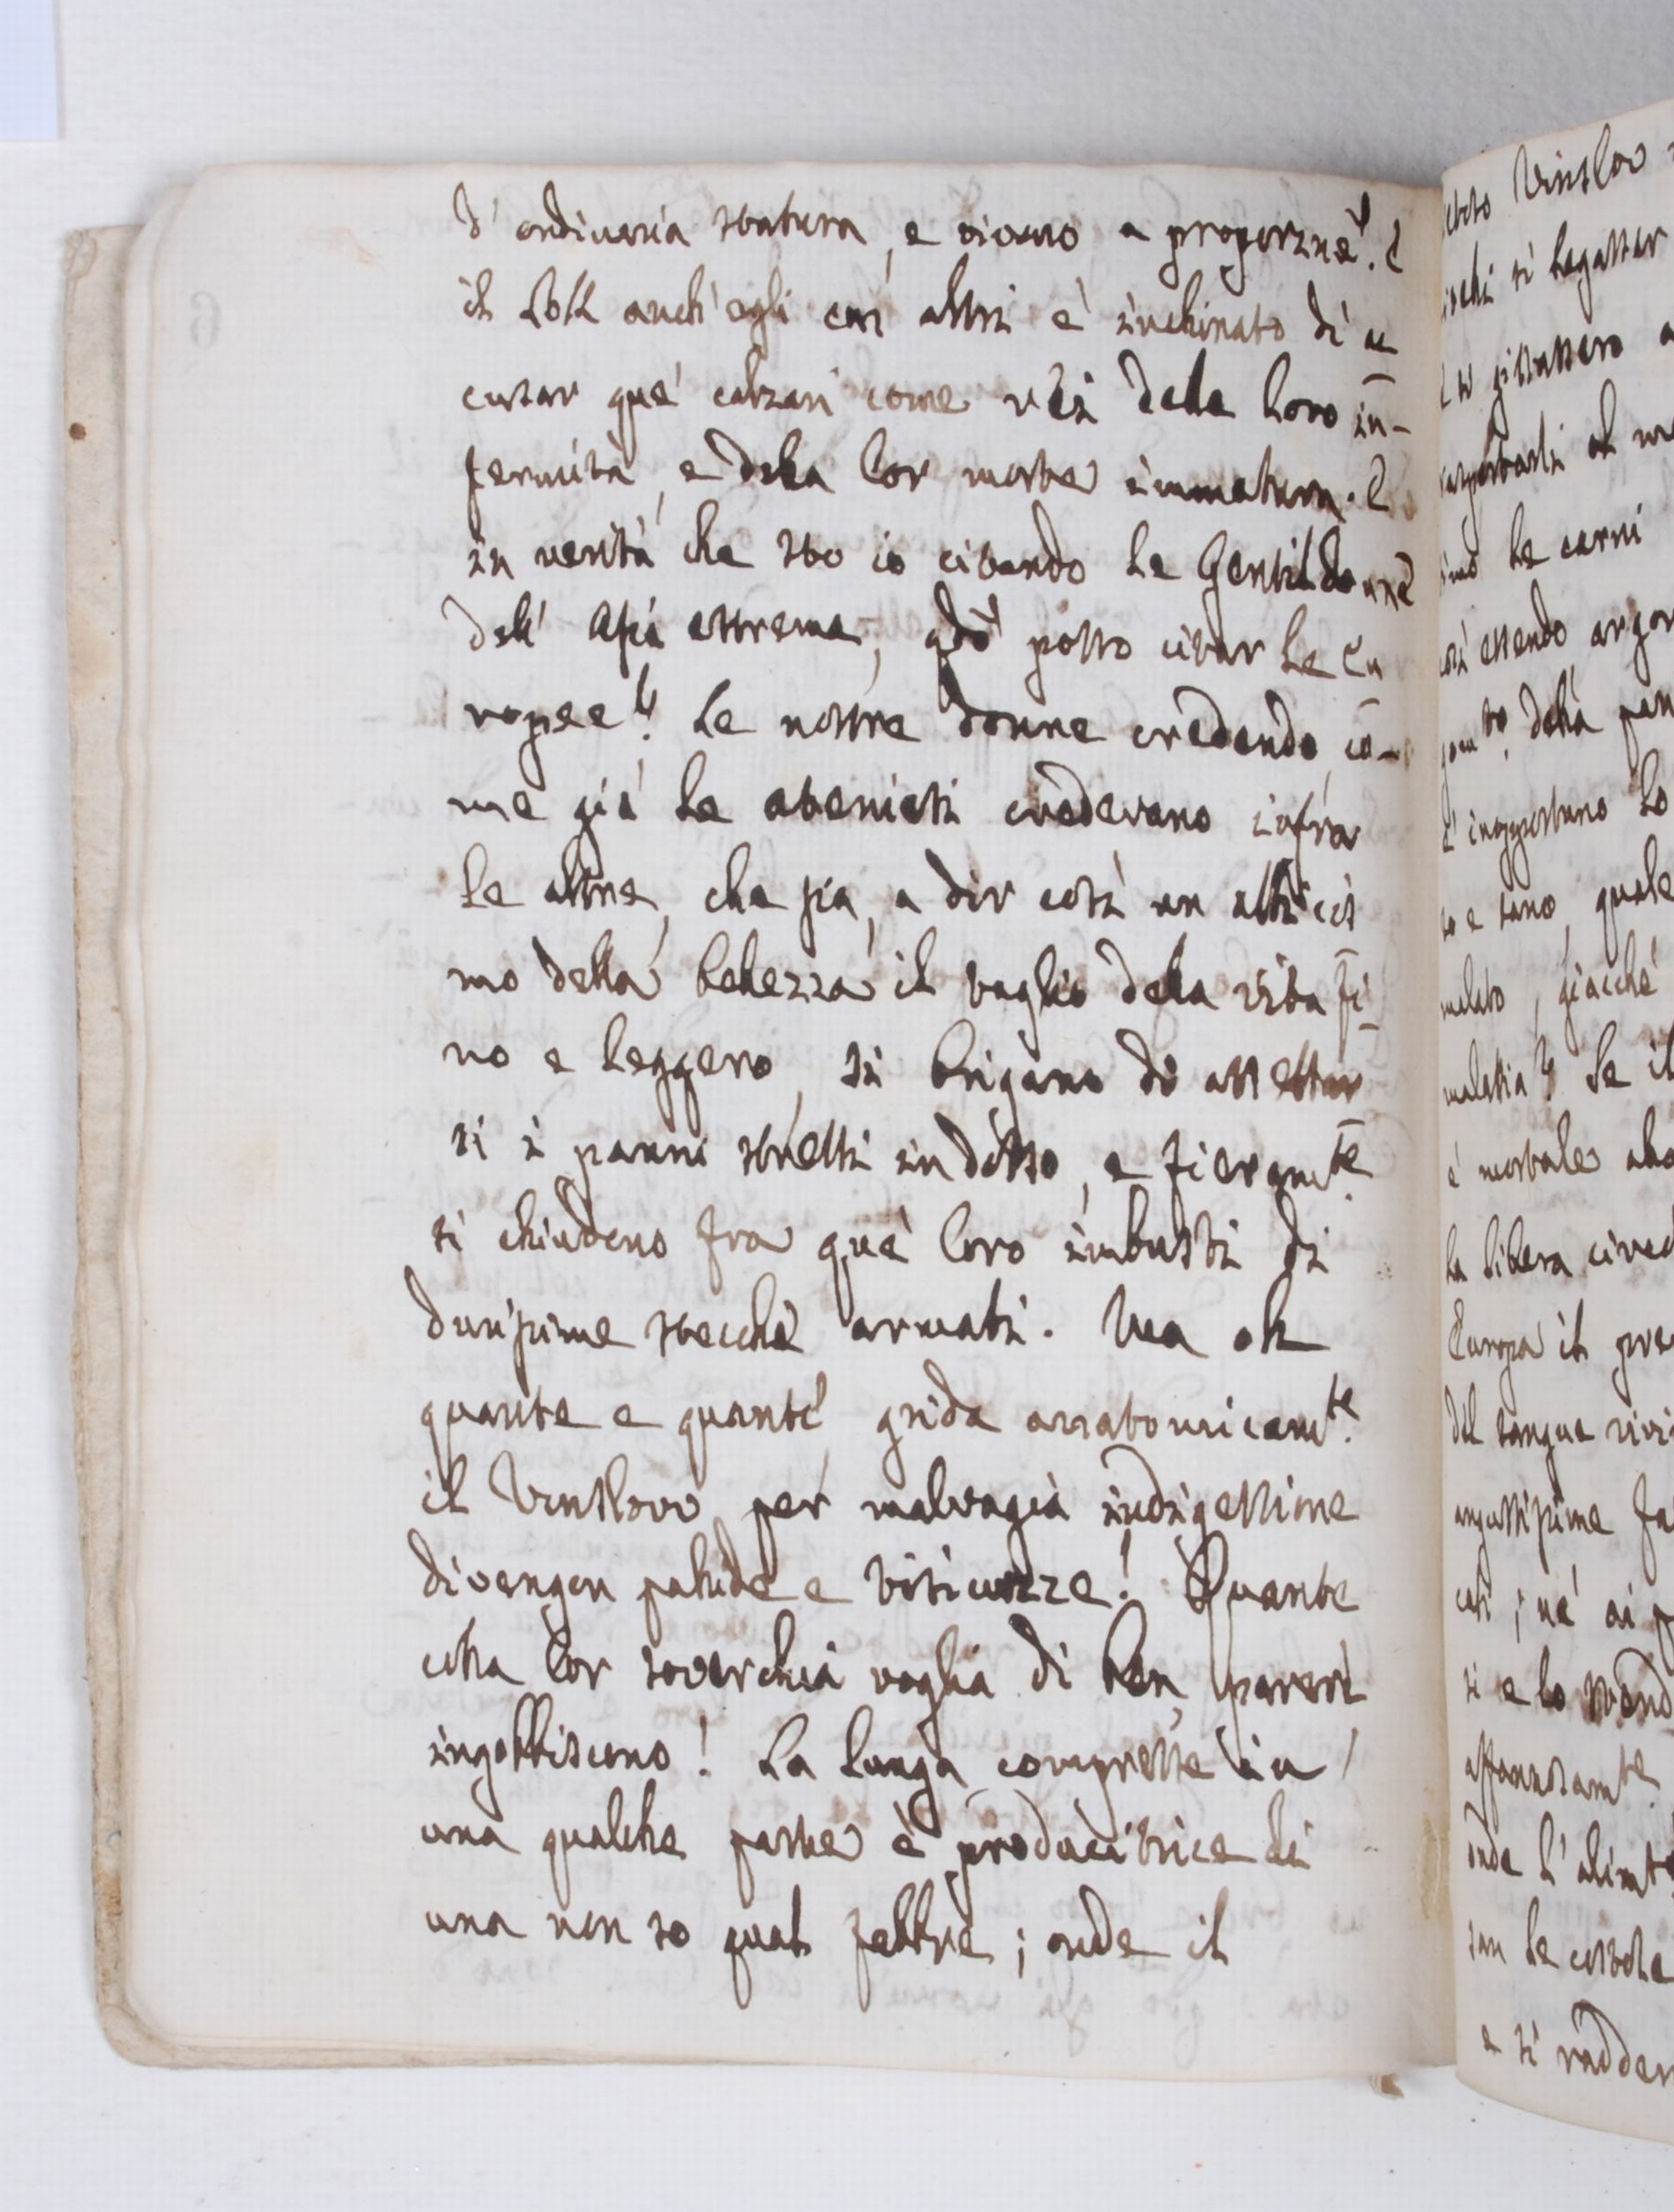 d'ordinaria statura, e vivono a proporzne. E
il Lok anch'egli con altri è inchinato di ac
cusar que' calzari come rei della loro in-
fermità, e della lor morte immatura. E
in verità che sto io citando le Gentildonne
dell' Asia estrema, qdo posso citar le Eu
ropee? Le nostre donne credendo, co-
me già le ateniesi credevano infra
le altre, che sia, a dir così un
mo della bellezza il taglio della vita fi-
no e leggero, si brigano di assettar
si i panni stretti indosso, e fieramte
si chiudono fra que' loro imbusti di
durissime stecche armati. Ma oh
quante e quante, grida anatomicamte
il Vinslovv, per malvagia indigestione
divengon pallide e tisicuzze! Quante
colla lor soverchia voglia di ben parere
ingobbiscono! La lunga compressne in
una qualche parte è producitrice di
una non so qual febbre; onde il
Vinslov
si legasser
gittassero
le carni
essendo
della
inopportuno lo
e sano, quale
giacchè
Se il
è mortale
la libera
Europa il
del sangue
nè ai
si e lo
affannosamte
onde l'alimto
le costole
e si